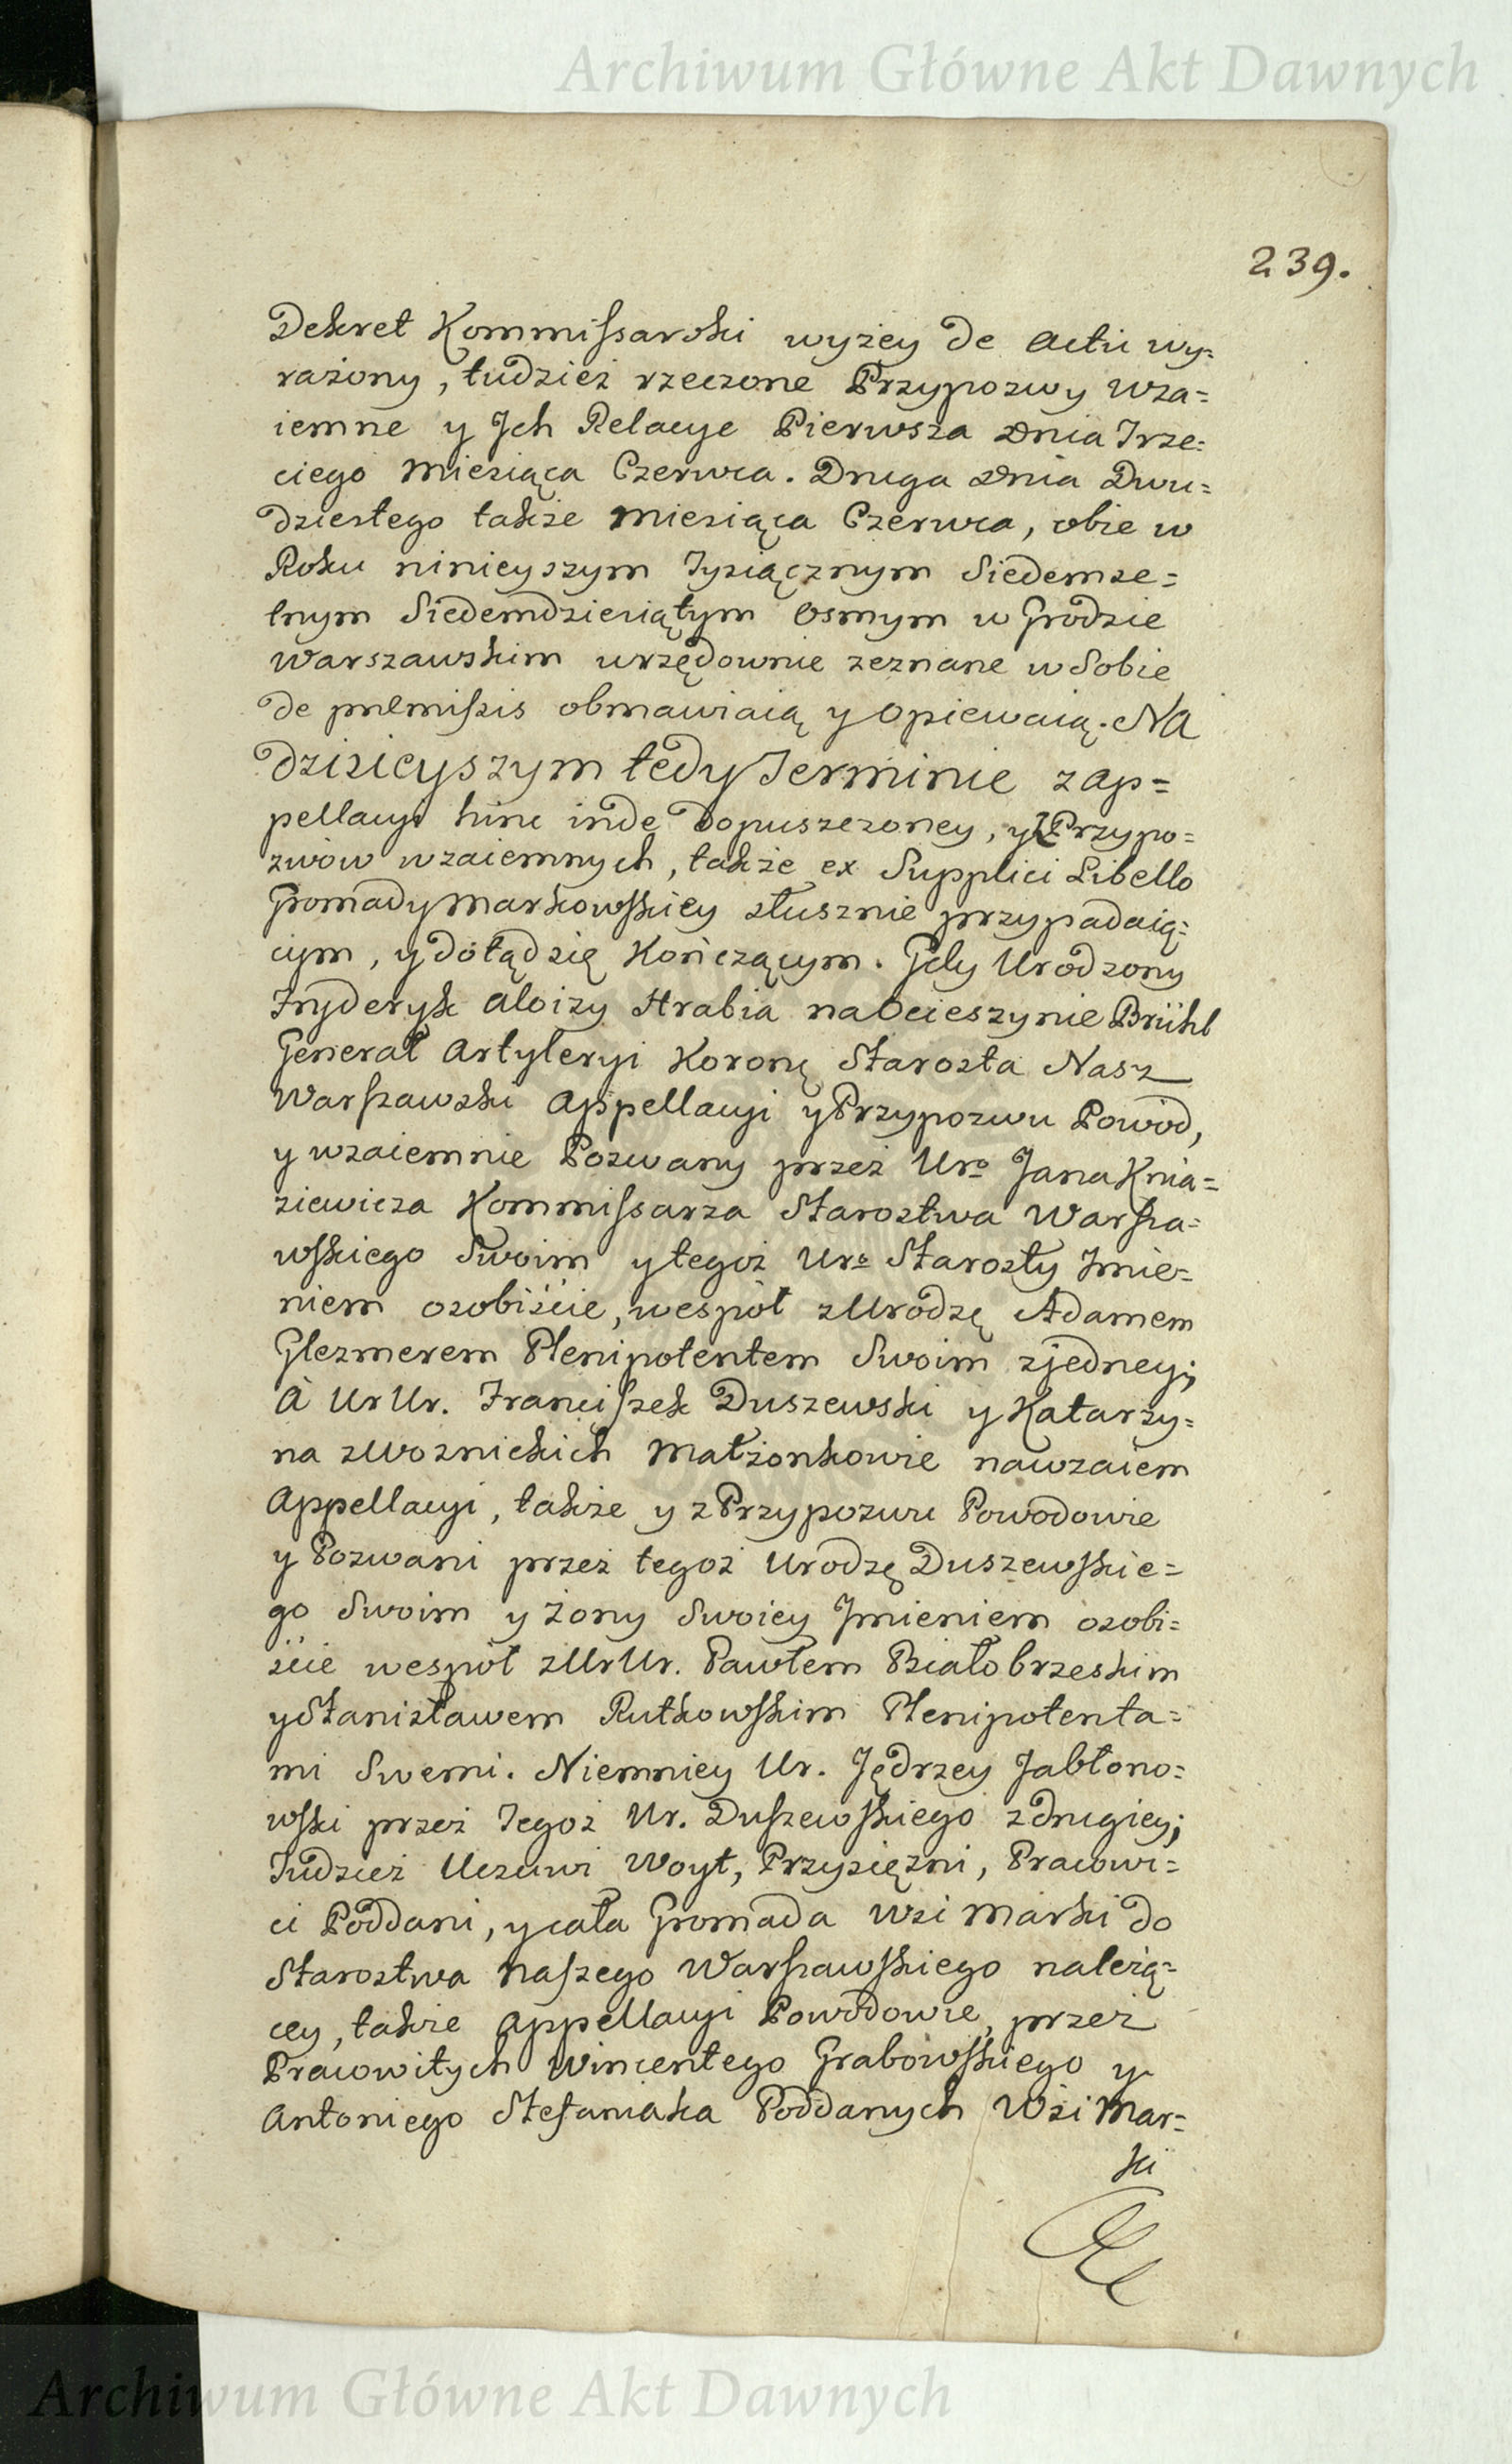 Archiwum Główne Akt Dawnych
239.
Dekret Kommissarski wyżey de Actu wy=
rażony, tudzież rzeczone Przypozwy wza=
iemne y Jch Relacye Pierwsza Dnia Trze=
ciego Miesiąca Czerwca. Druga Dnia Dwu=
dziestego także Miesiąca Czerwca, obie w
Roku ninieyszym Tysiącznym Siedemse=
tnym Siedemdziesiątym Osmym w Grodzie
Warszawskim urzędownie zeznane w Sobie
de præmissis obmawiaią y opiewaią. NA
dzisieyszym tedy Terminie z Ap=
pellacyi hinc inde dopuszczoney, y Przypo=
zwow wzaiemnych, także ex Supplici Libello
Gromady Markowskiey słusznie przypadaią=
cym, y dotąd się Kończącym. Gdy Urodzony
Fryderyk Aloizy Hrabia na Ocieszynie Brühl
Generał Artyleryi Koronę Starosta Nasz
Warszawski Appellacyi y Przypozwu Powod,
y wzaiemnie Pozwany przez Uro Jana Knia=
ziewicza Kommissarza Starostwa Warsza=
wskiego Swoim y tegoż Uro Starosty Jmie=
niem osobiście, wespół z Urodzę Adamem
Glezmerem Plenipotentem Swoim z jedney;
A Ur Ur. Franciszek Duszewski y Katarzy=
na z Woznickich Małżonkowie nawzaiem
Appellacyi, także y z Przypozwu Powodowie
y Pozwani przez tegoż Urodzę Duszewskie=
go Swoim y Żony Swoiey Jmieniem osobi=
ście wespół z Ur Ur. Pawłem Białobrzeskim
y Stanisławem Rutkowskim Plenipotenta=
mi Swemi. Niemniey Ur. Jędrzey Jabłono=
wski przez Tegoż Ur. Duszewskiego z drugiey;
Tudzież Uczciwi Woyt, Przysiężni, Pracowi=
ci Poddani, y cała Gromada Wsi Marki do
Starostwa Naszego Warszawskiego należą=
cey, także Appellacyi Powodowie, przez
Pracowitych Wincentego Grabowskiego y
Antoniego Stefaniaka Poddanych Wsi Mar=
ki
Archiwum Główne Akt Dawnych